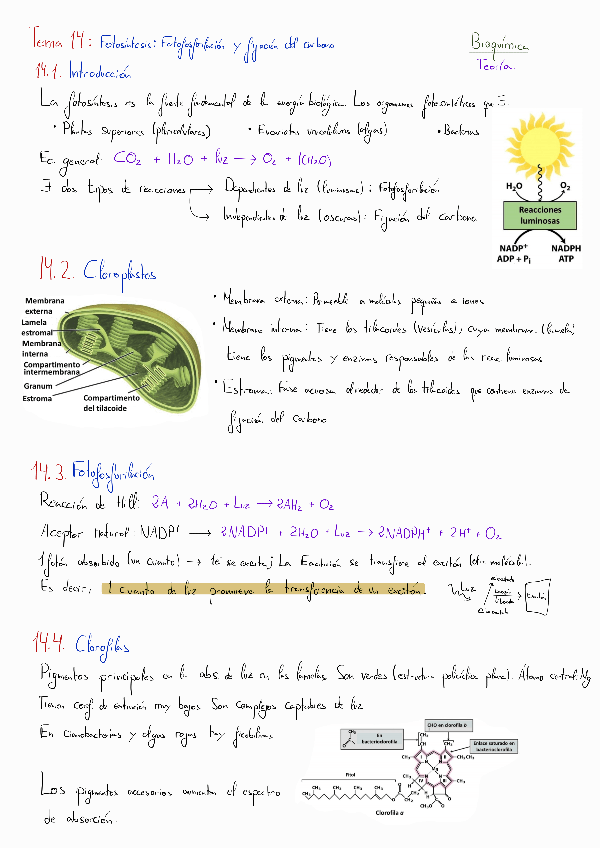 Tema 14: Fotosíntesis: Fotofosforilación y fijación del carbono
Bioquímica
Teoría.
14.1. Introducción
La fotosíntesis es la fuente fundamental de la energía biológica. Los organismos fotosintéticos que ∃:
• Plantas Superiores (pluricelulares)
• Eucariotas unicelulares (algas)
• Bacterias
Ec. general: CO2 + H2O + Luz → O2 + (CH2O)
∃ dos tipos de reacciones → Dependientes de luz (luminosas): Fotofosforilación
→ Independientes de luz (oscuras): Fijación del carbono
H2O
O2
Reacciones
luminosas
NADP+
ADP + Pi
NADPH
ATP
14.2. Cloroplastos
Membrana
externa
Lamela
estromal
Membrana
interna
Compartimento
intermembrana
Granum
Estroma
Compartimento
del tilacoide
• Membrana externa: Permeable a moléculas pequeñas e iones
• Membrana interna: Tiene los tilacoides (vesículas), cuya membrana (lamela)
tiene los pigmentos y enzimas responsables de las reac. luminosas
• Estroma: Fase acuosa alrededor de los tilacoides que contiene enzimas de
fijación del carbono
14.3. Fotofosforilación
Reacción de Hill: 2A + 2H2O + Luz → 2AH2 + O2
Aceptor natural NADP+ → 2NADP+ + 2H2O + Luz → 2NADPH+ + 2H+ + O2
1 fotón absorbido (un cuanto) → se excita; La Excitación se transfiere al excitón
Es decir, 1 cuanto de luz promueve la transferencia de un excitón.
Luz
14.4. Clorofilas
Pigmentos principales en la abs. de luz en las Son verdes (estructura policíclica plana). Átomo central: Mg
Tienen coef. de extinción muy bajos Son complejos captadores de luz
En Cianobacterias y algas rojas hay ficobilinas
Los pigmentos accesorios aumentan el espectro
de absorción.
CHO en clorofila b
En
bacterioclorofila
Enlace saturado en
bacterioclorofila
Fitol
Clorofila a